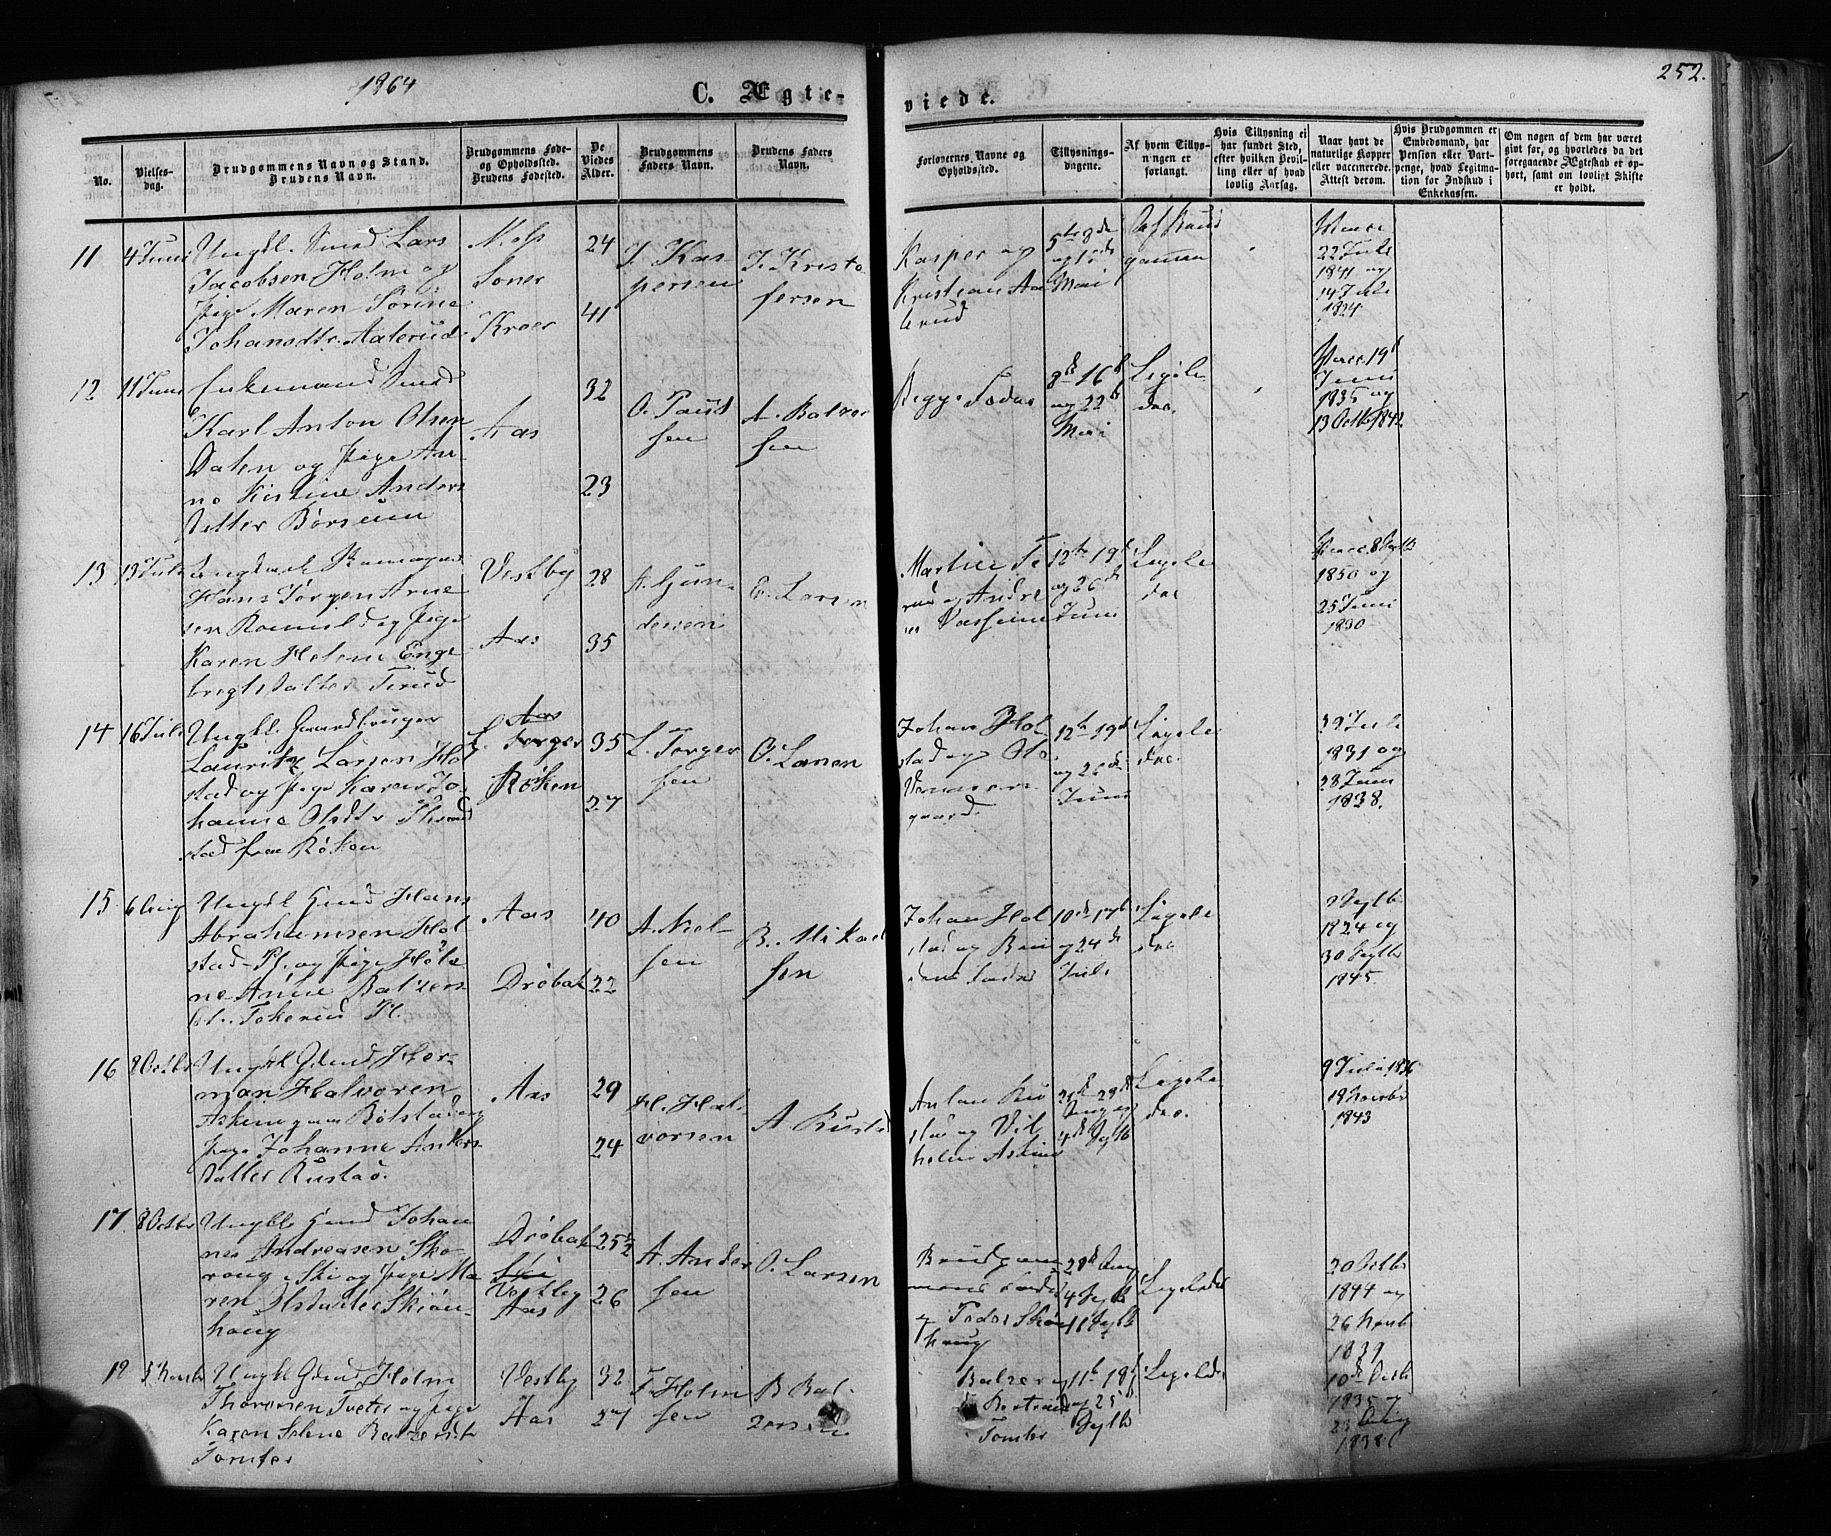 1864
C. Ægte-
viede.
252.
No.
Vielses-
dag.
Brudgommens Navn og Stand.
Brudens Navn.
Brudgommens Føde-
og Opholdssted.
Brudens Fødested.
De
Viedes
Alder.
Brudgommens
Faders Navn.
Brudens Faders
Navn.
Forlovernes Navne og
Opholdssted.
Tillysnings-
dagene.
Af hvem Tillys-
ningen er
forlangt.
Hvis Tillysning ei
har fundet Sted,
efter hvilken Bevil-
ling eller af hvad
lovlig Aarsag.
Naar havt de
naturlige Kopper
eller vaccinerede.
Attest derom.
Hvis Brudgommen er
Embedsmand, har
Pension eller Vart-
penge, hvad Legitma-
tion for Indskud i
Enkekassen.
Om nogen af dem har været
gift før, og hvorledes da det
foregaaende Ægteskab er op-
hørt, samt om lovligt Skifte
er holdt.
11
4 Juni
Ungkl. Smed Lars
Jacobsen Holm og
Pige Maren Sorine
Johansdtr. Aaterud
Kroer
24
41
J. Kas-
persen
J. Kristo
fersen
Kasper og
Kristian Aa
terud
og
Mai
22 Juli
1841 og
14 Juli
1824
12
11 Juni
Enkemand Smed
Karl Anton Olsen
Dalen og Pige An-
ne Kistine Anders
datter Børsum
Aas
32
23
O. Paul
sen
A. Balzer
sen
Begge Fædre
8de 16de
og 22de
Mai
Ligele
des.
Vacc. 19de
Juni
1835 og
13 Octbr 1842
13
13 Juli
Hans Jørgen Arne
sen Romsild og Pige
Karen Helene Enge
bregtsdatter Terud
Vestby
Aas
28
35
A. Gun-
dersen
E. Larsen
Martin Te
rud og Andre
as
12te 19de
og 26de
Juni
Ligele
des
Vacc. 8 Septb
1850 og
25 Juni
1830
14
16 Juli
Ungkl. Gaardbruger
Lauritz Larsen Hol
stad og Pige Karen Jo
hanne Olsdtr
stad fra Røken
Aas
Røken
35
27
L. Torger
sen
O. Larsen
Johan Hol
stad og Ole
gaard.
12te 19de
og 26de
Juni
Ligele
des.
Juli
1831 og
23 Juni
1838.
15
6 Aug
Ungkl Gmd Hans
Abrahamsen Hol
stad Pl. og Pige Hele
ne Anne Balzers
dt. Tokerud Pl.
Aas
Drøbak
40
22
A. Niel-
sen
B. Mikael
sen
Johan Hol
stad og Bru
dens Fader
10de 17de
og 24de
Juli
Ligele
des
Septb
1824 og
30 Septb
1845.
16
Octbr
Ungkl Gmd Her-
man Halvorsen
Askim paa Bølstad og
Pige Johanne Anders
datter Rustad.
Aas
29
24
H. Hal-
vorsen
A Rustad
Anton Ru
stad og Vil
helm Askim
21de 28de
Aug og
4de Septb
Ligele
des.
9 Juli 1836
18 Novbr
1843
17
8 Octbr
Ungkl Gmd Johan
nes Andreasen Sko-
roug i Ski og Pige Ma
ren Olsdatter Skiøn-
haug
Drøbak
Ski
Vestby
Aas
25½
26
A. Ander
sen
O. Larsen
Brudgom
mens Fader
og Peder Skiøn
haug
28de Aug
4 Septb
11 Septb
Ligeledes
20 Octbr
1844 og
26 Novb
1839
18
5 Novbr
Ungkl Gmd Holm
Thoresen Tveter og Pige
Karen Helene Balzersdt
Tomter
Vestby
Aas
32
27
T. Holm
sen
B Bal-
zersen
Balzer og
Bertrand
Tomter
11te 18de
og 25de
Septb
Ligeledes
10de Octb
1835 og
23 Aug
1838